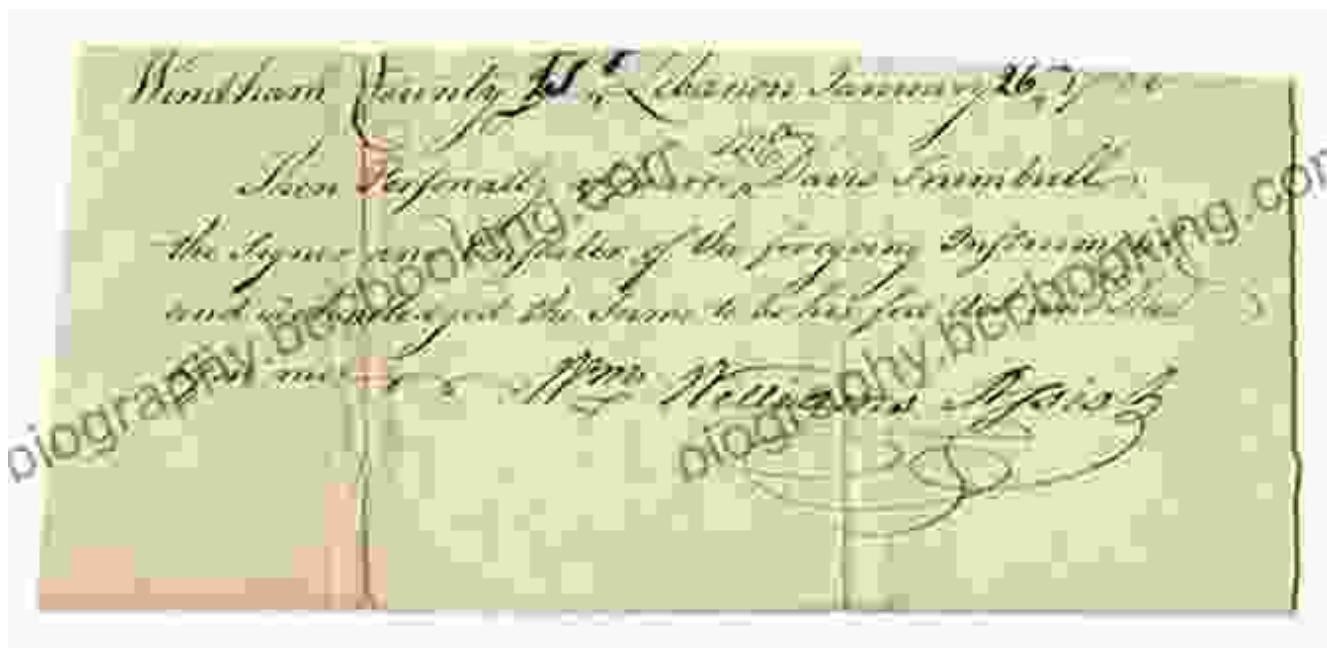 Windham County Ss Lebanon January 26th
Then Personally David Trumbull
the Signer and of the foregoing Instrument
and acknowledged the Same to be his free
me
Wm Williams Assist
biography.bccbooking.com
biography.bccbooking.com